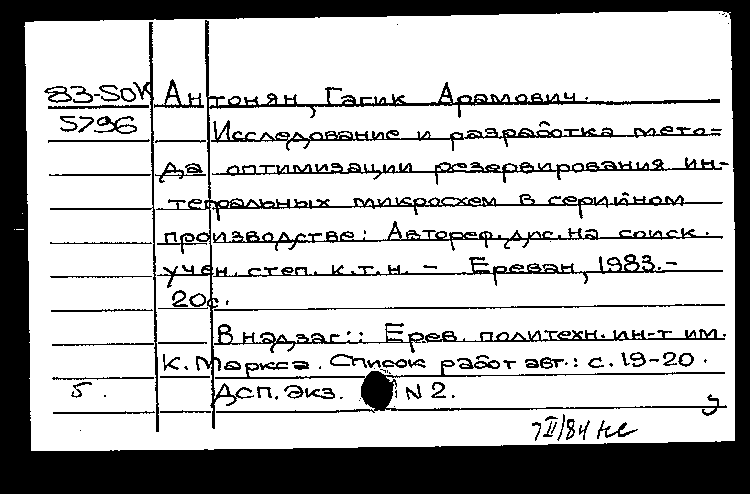 83-SOK Антонян, Гагик Арамович.
5796 Исследование и разработка мето=
да оптимизации резервирования ин-
тегральных микросхем в серийном
производстве: Автореф. дис. на соиск.
учен. степ. к.т.н. – Ереван, 1983.–
20с.
В надзаг.: Ерев. политехн. ин-т им.
К. Маркса. Список работ авт.: с. 19-20.
5. ДСП. Экз. N 2.
7 II/84 нс